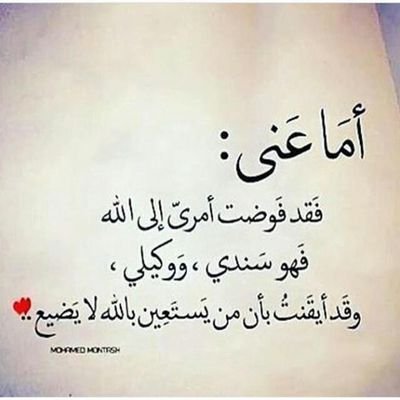 أمَا عَنى :
فَقد فَوضت أمرىّ إلى الله
فَهو سَندي ، وَوكيلي ،
وقَد أيقَنتُ بأن من يَستَعِين بالله لا يَضيع ..
MOHAMED MONTASH